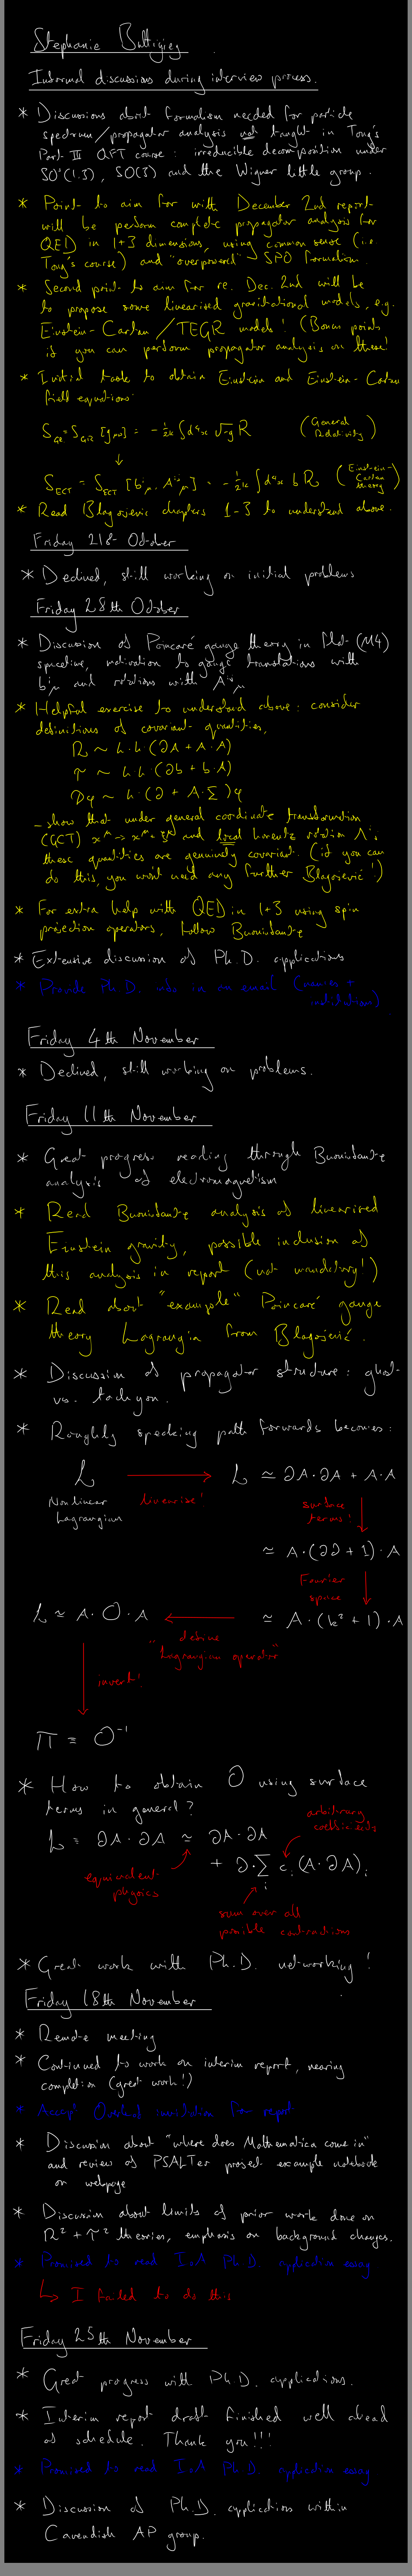 Stephanie Buttigieg
Informal discussions during interview process.
* Discussions about formalism needed for particle
spectrum/propagator analysis not taught in Tong's
Part III QFT course: irreducible decomposition under
SO⁺(1,3), SO(3) and the Wigner little group.
* Point to aim for with December 2nd report
will be perform complete propagator analysis for
QED in 1+3 dimensions, using common sense (i.e.
Tong's course) and "overpowered" SPO formalism.
* Second point to aim for re. Dec. 2nd will be
to propose some linearised gravitational models, e.g.
Einstein-Cartan/TEGR models! (Bonus points
if you can perform propagator analysis on these!
* Initial task to obtain Einstein and Einstein-Cartan
field equations:
S_GR = S_GR [g_μν] = -1/2κ ∫d⁴x √-g R (General Relativity)
↓
S_ECT = S_ECT [b^i_μ, A^ij_μ] = -1/2κ ∫d⁴x b R (Einstein-Cartan theory)
* Read Blagojevic chapters 1-3 to understand above.
Friday 21st October
* Declined, still working on initial problems
Friday 28th October
* Discussion of Poincaré gauge theory in flat (M4)
spacetime, motivation to gauge translations with
b^i_μ and rotations with A^ij_μ
* Helpful exercise to understand above: consider
definitions of covariant quantities,
R ~ h·h·(∂A + A·A)
T ~ h·h·(∂b + b·A)
Dφ ~ h·(∂ + A·Σ)φ
- show that under general coordinate transformation
(GCT) x^μ → x^μ + ξ^μ and local Lorentz rotation Λ^i_j
these quantities are genuinely covariant. (if you can
do this, you wont need any further Blagojević!)
* For extra help with QED in 1+3 using spin
projection operators, follow Buoninfante
* Extensive discussion of Ph.D. applications
* Provide Ph.D. info in an email (names + institution)
Friday 4th November
* Declined, still working on problems.
Friday 11th November
* Great progress reading through Buoninfante
analysis of electromagnetism
* Read Buoninfante analysis of linearised
Einstein gravity, possible inclusion of
this analysis in report (not mandatory!)
* Read about "example" Poincaré gauge
theory Lagrangian from Blagojević.
* Discussion of propagator structure: ghost
vs. tachyon.
* Roughly speaking path forwards becomes:
L → L ≃ ∂A·∂A + A·A
Nonlinear Lagrangian
linearise!
surface terms!
≃ A·(∂∂ + 1)·A
Fourier space
L ≃ A·O·A ← ≃ A·(k² + 1)·A
define "Lagrangian operator"
invert!
Π ≡ O⁻¹
* How to obtain O using surface
terms in general?
arbitrary coefficients
L = ∂A·∂A ≃ ∂A·∂A
+ ∂·Σ_i c_i (A·∂A)_i
equivalent physics
sum over all possible contractions
* Great work with Ph.D. networking!
Friday 18th November
* Remote meeting
* Continued to work on interim report, nearing
completion (great work!)
* Accept Overleaf invitation for report
* Discussion about "where does Mathematica come in"
and review of PSALTer project example notebook
on webpage
* Discussion about limits of prior work done on
R² + T² theories, emphasis on background changes.
* Promised to read Ph.D. application essay
↳ I failed to do this
Friday 25th November
* Great progress with Ph.D. applications.
* Interim report draft finished well ahead
of schedule. Thank you!!!
* Promised to read Ph.D. application essay
* Discussion of Ph.D. applications within
Cavendish AP group.